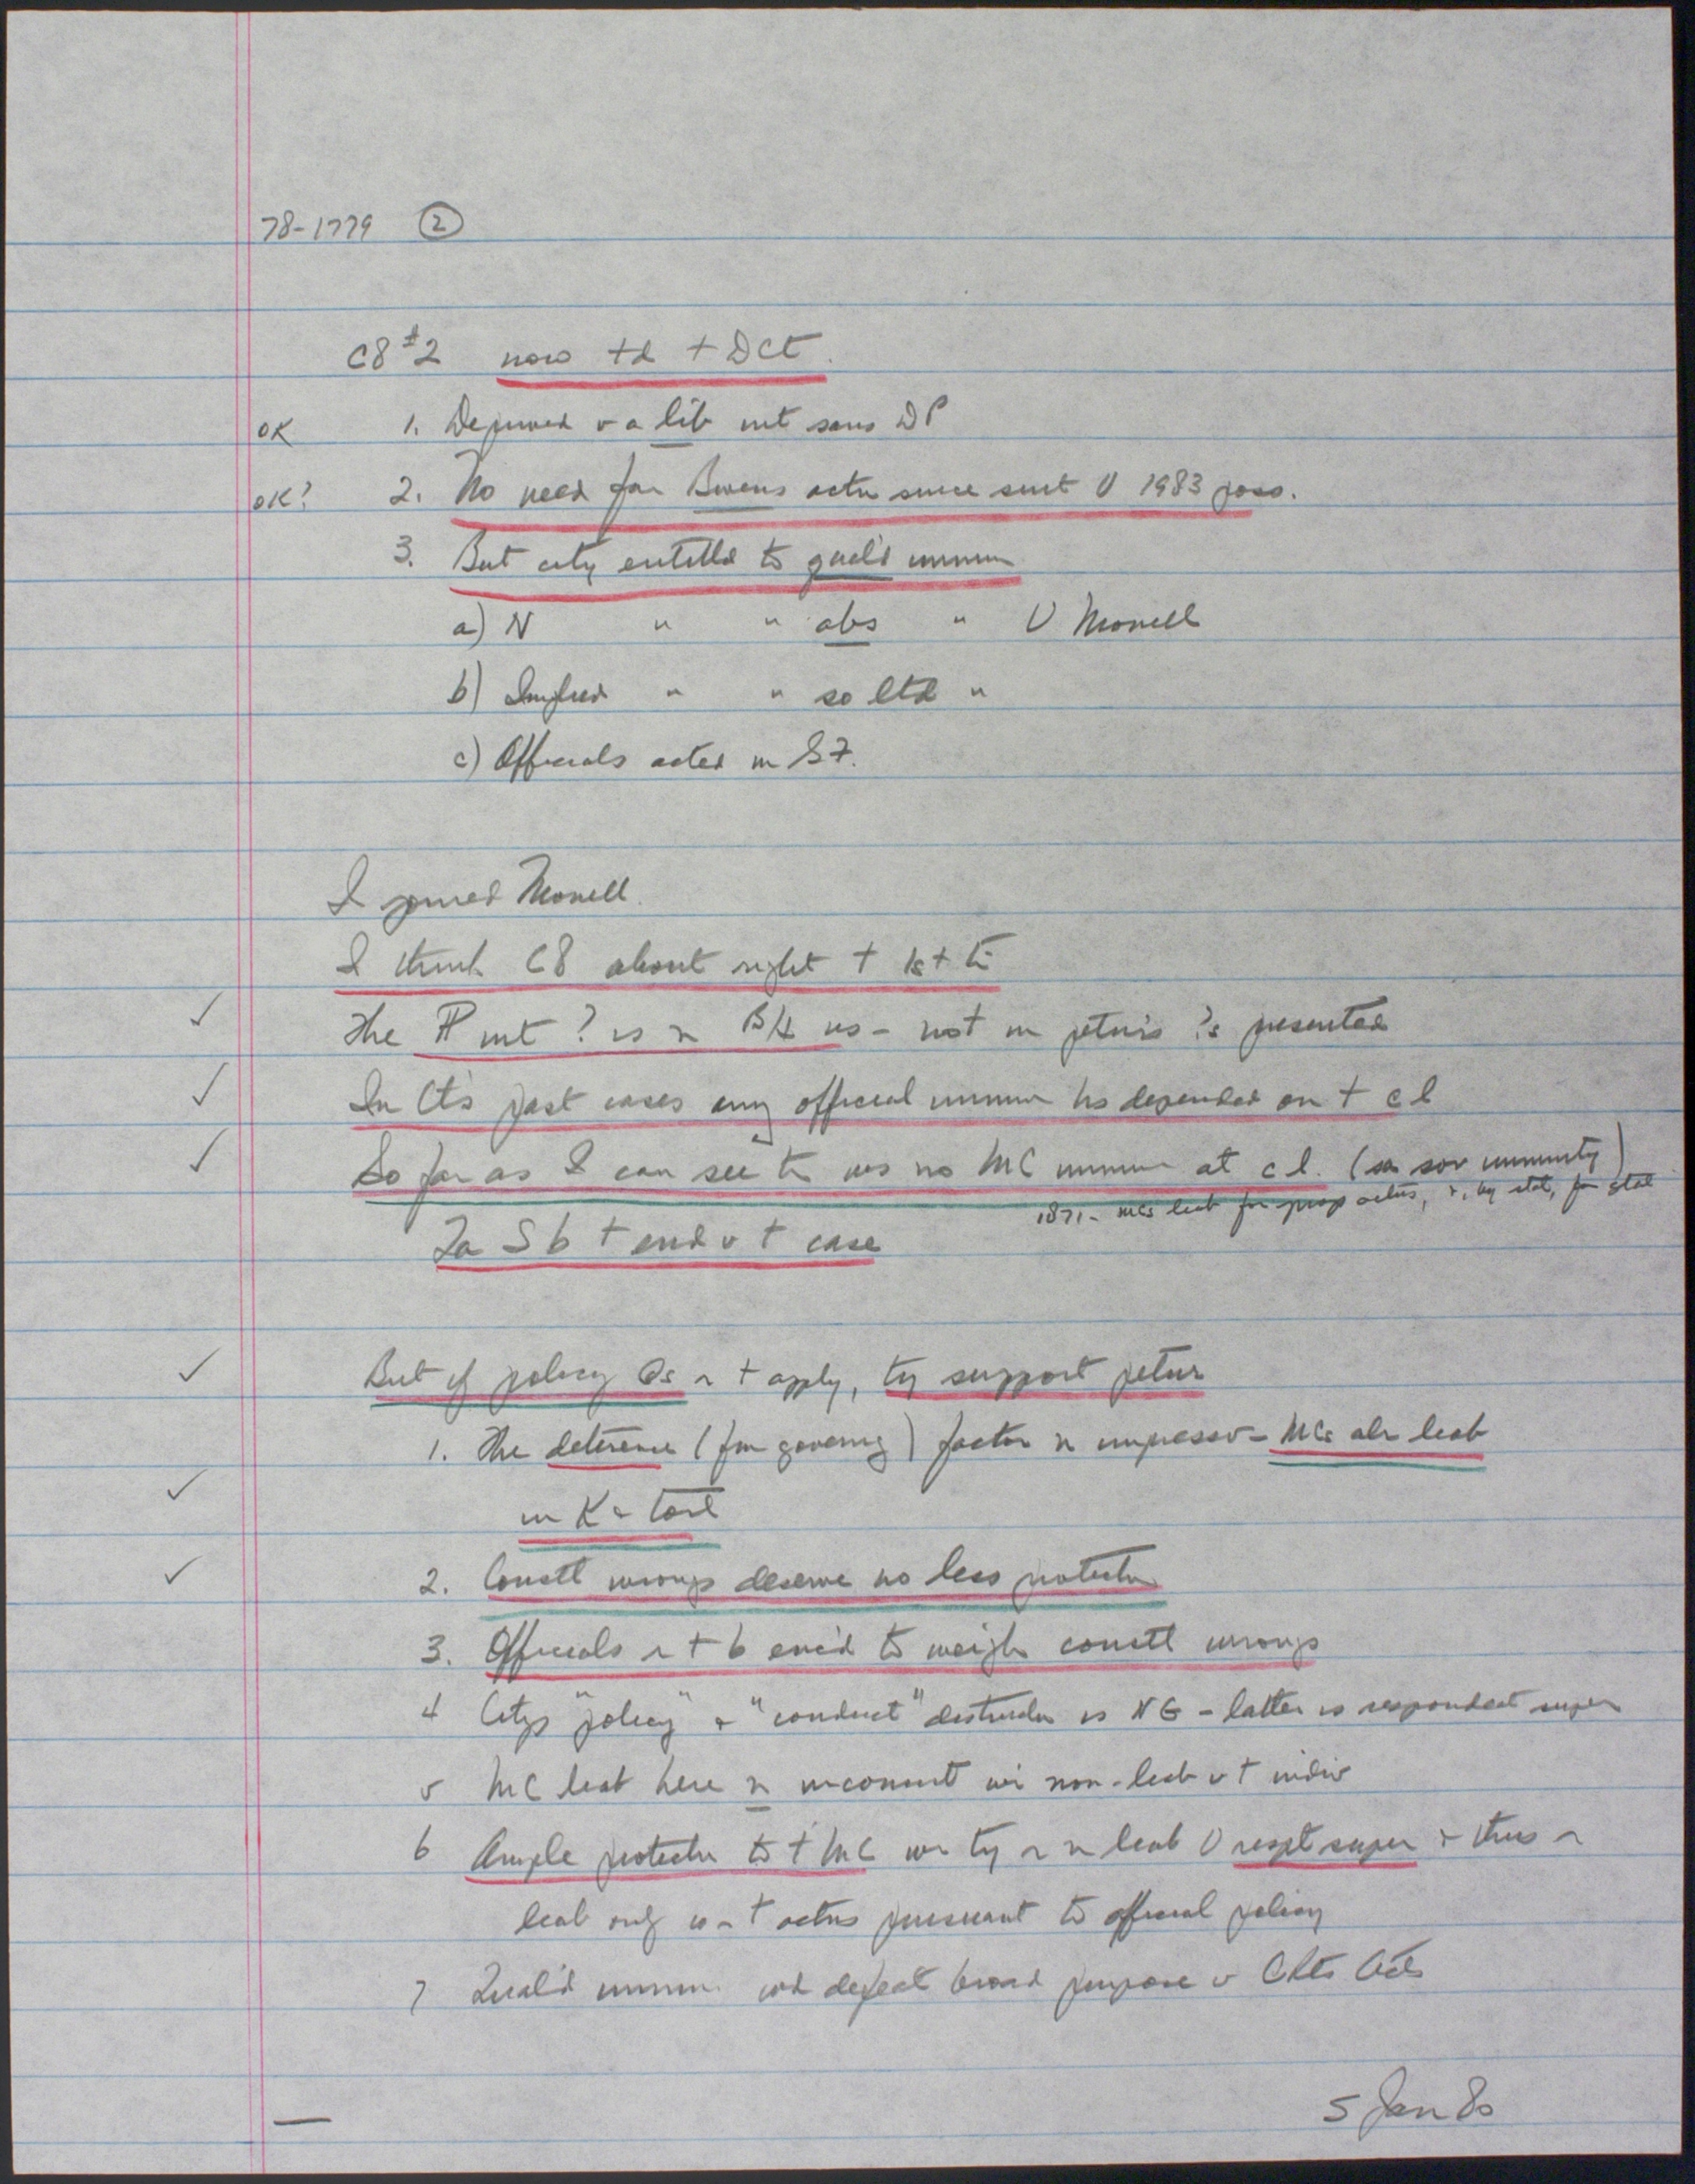 78-1779 ②
C8 #2 now td + DCt.
OK 1. Deprived v a lib int sans DP
OK? 2. No need for Bivens actn since suit U 1983 poss.
3. But city entitld to qual'd immun
a) N " " abs " U Monell
b) Implied " " so ltd "
c) Officials acted in GF.
I joined Monell.
I think C8 about right +
✓ The P int ? is n B/4 us - not in petnr's ?s presented
✓ In Ct's past cases any official immun hs depended on + c l
✓ So far as I can see th ws no MC immun at c l. (sov immunity)
1871 - MCs liab for prop actns, by stat, for
Ta S b + end v + case
✓ But if policy Qs r + apply, ty support petnr
1. The deterrence (for governg) factor n impressv - MCs alr liab
✓ in K & tort
✓ 2. Constl wrongs deserve no less protectn
3. Officials r + b enc'd to weigh constl wrongs
4 City's "policy" & "conduct" distinctn is NG - latter is respondeat super
5 MC liab here n inconsist wi non-liab v + indiv
6 Ample protectn to + MC in ty r n liab U respt super & thus r
liab only w + actns pursuant to official policy
7 Qual'd immun wd defeat broad purpose v CRts Acts
5 Jan 80